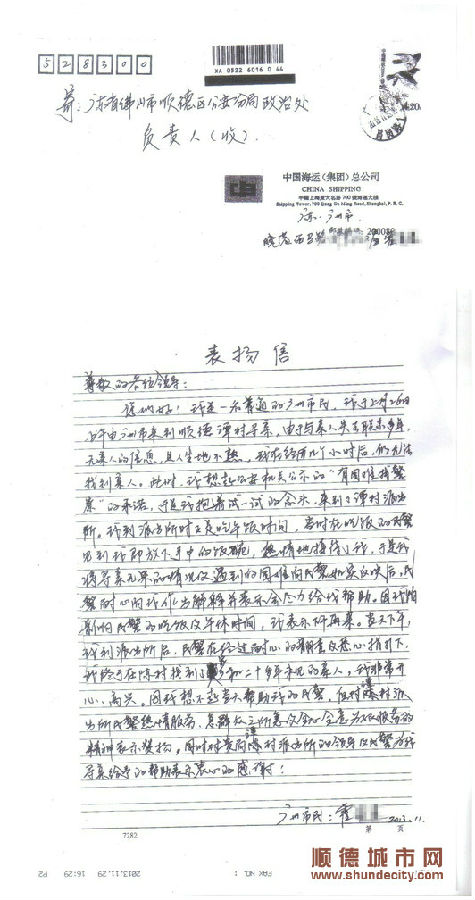 528300
XA 0922 6016 0 44
寄:广东省佛山市顺德区公安分局政治处
负责人(收)
中国海运(集团)总公司
CHINA SHIPPING
广东广州市
表扬信
尊敬的各位领导:
您们好!我是一名普通的广州市民,我于上月26日
上午由广州市来到顺德谭村寻亲,由于与亲人失去联系多年,
无亲人的信息,且人生地不熟,
找到亲人。此时,我想起公安机关公示的“有困难找警
察”的承诺,于是我抱着试一试的念头,来到了谭村派出
所。我到派出所时正是吃午饭时间,当时在吃饭的民警
见到我即放下手中的饭碗,热情地接待了我,于是我
将寻亲无果的情况及遇到的困难向民警如实反映后,民
警耐心向我作出解释并表示会尽力给我帮助。因我怕
影响民警的吃饭及午休时间,我表示午后再来。当天下午,
我到派出所后,民警在经过耐心的调查及悉心指引下,
我终于在谭村找到了二十多年未见的亲人,我非常开
心、高兴。因我想不起当天帮助我的民警,但对谭村派
出所民警热情服务、急群众之所急及全心全意为人民服务的
精神表示赞扬,同时对贵局谭村派出所的领导及民警为我
寻亲给予的帮助表示衷心的感谢!
广州市民:霍
2013.11.
7282
第 页
2013.11.29 16:29
FAX NO. :
P2
顺德城市网
www.shundecity.com